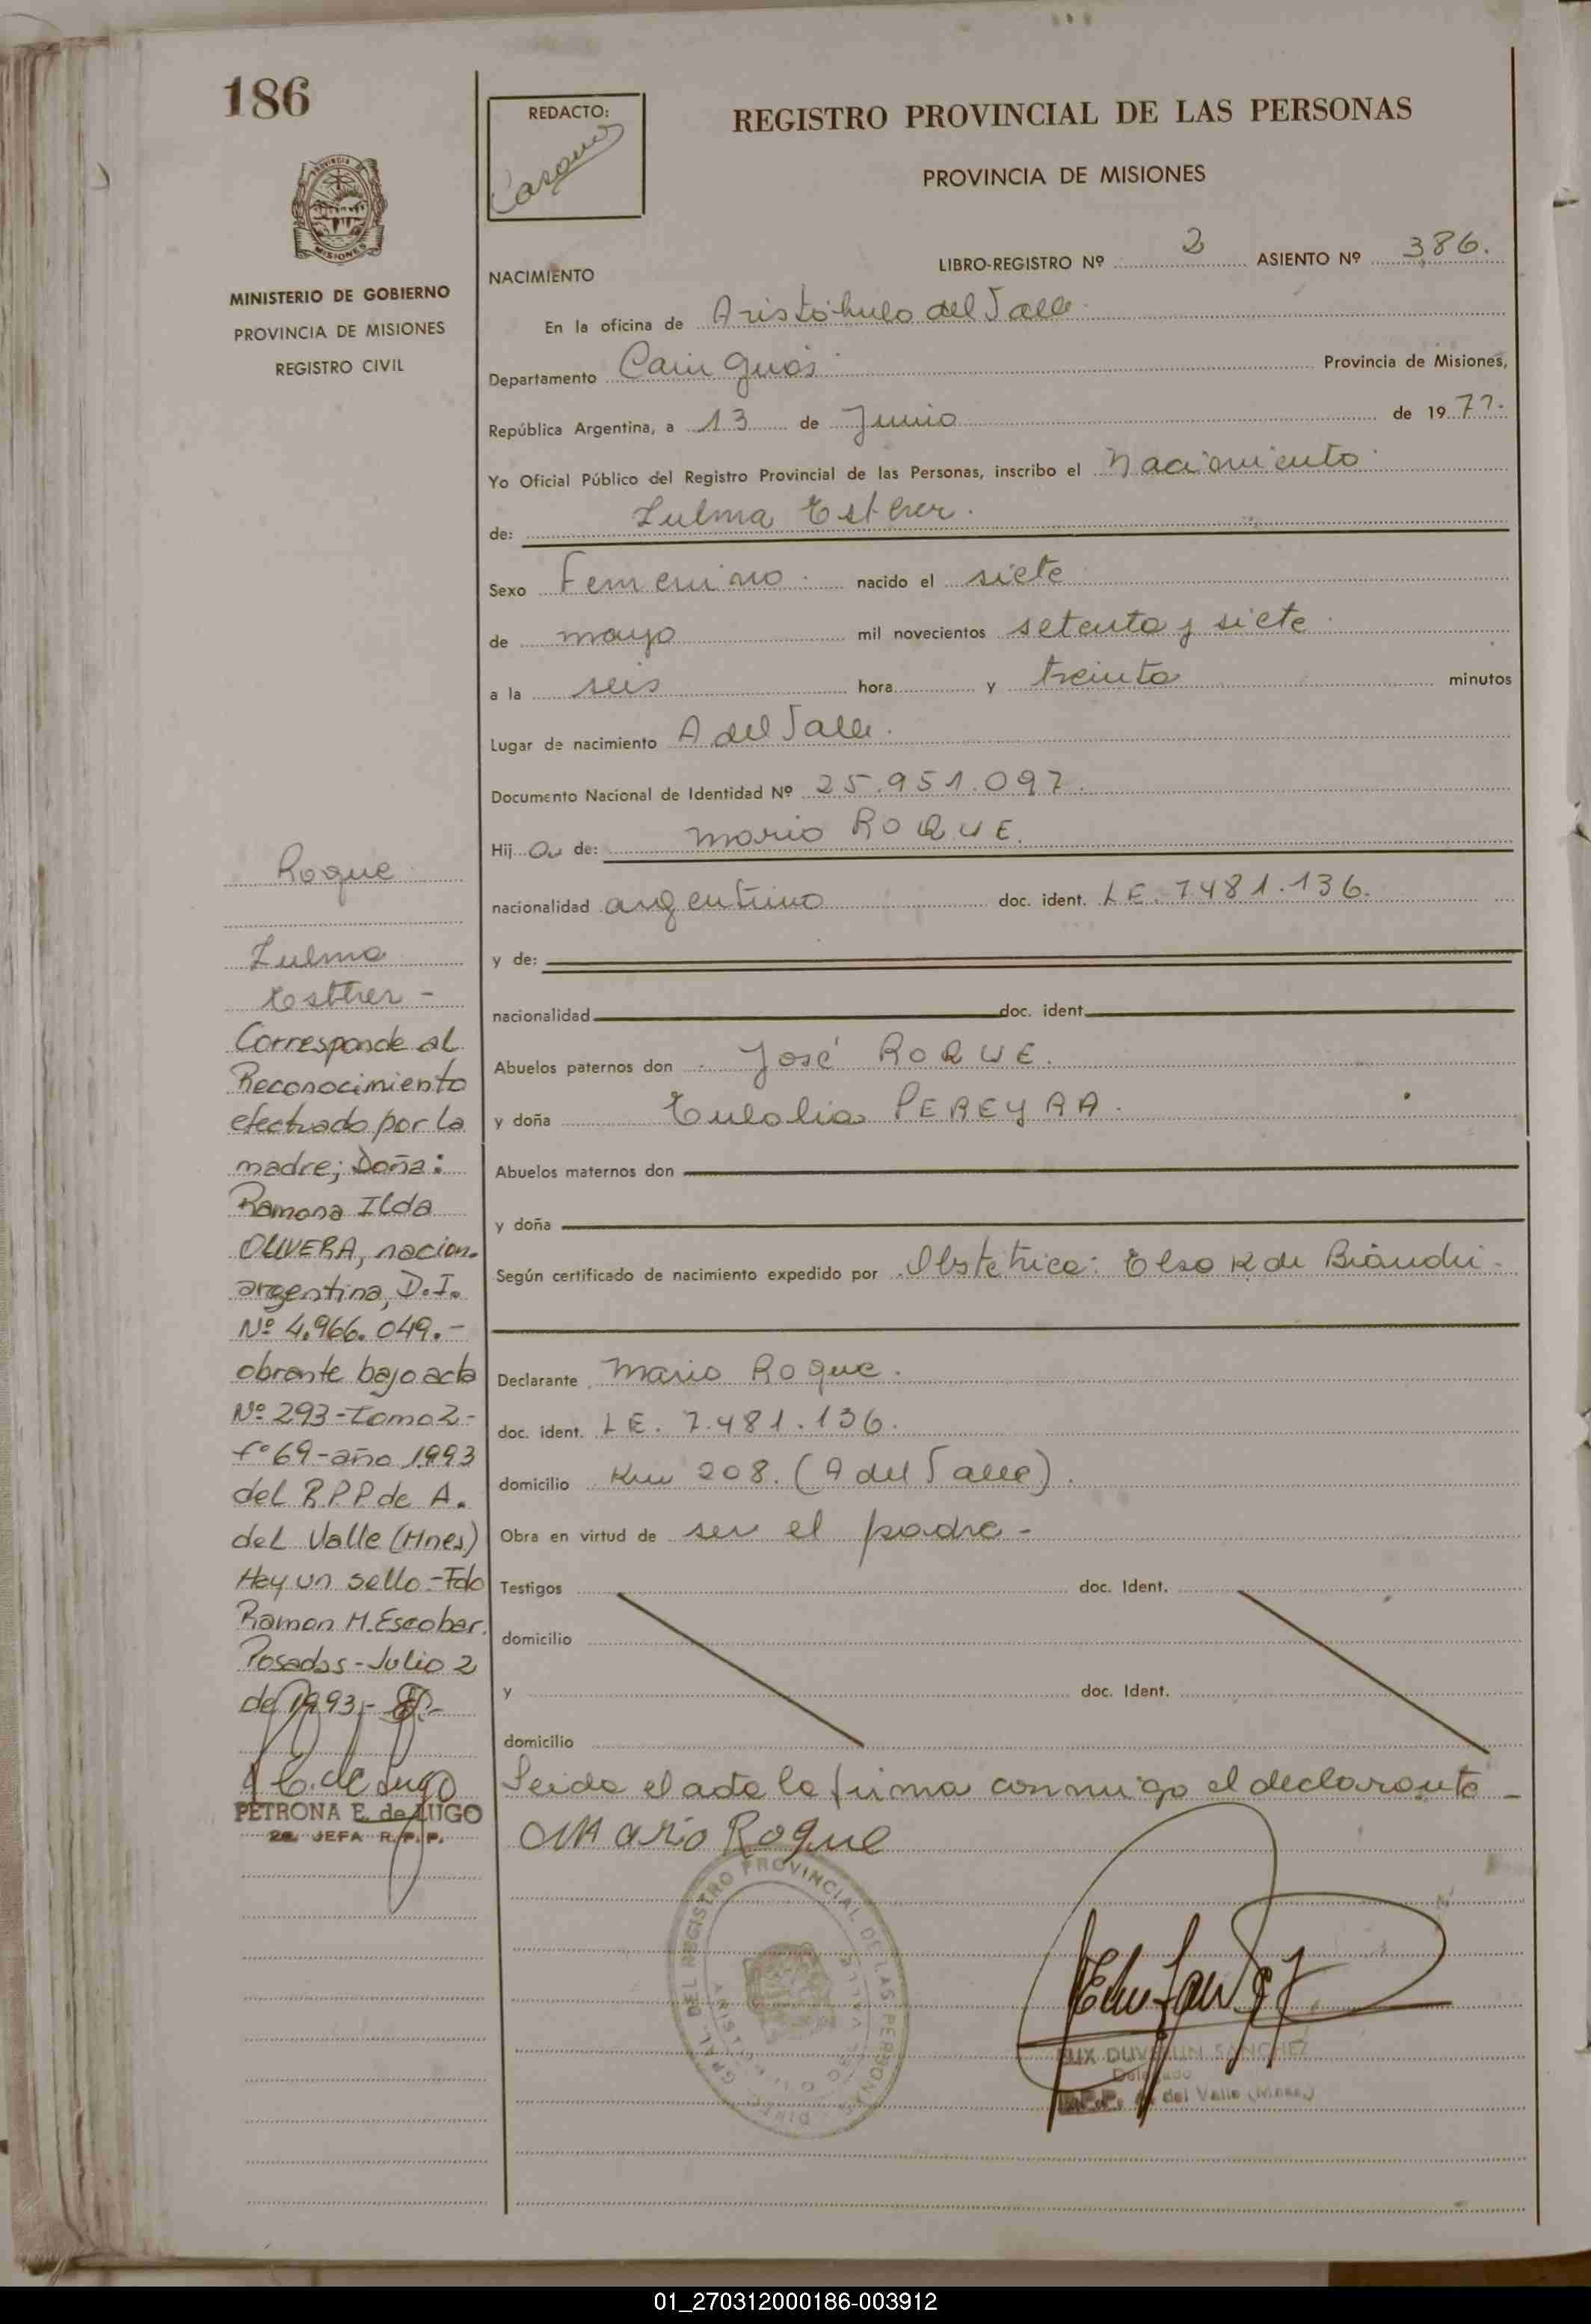 186
REDACTO:
REGISTRO PROVINCIAL DE LAS PERSONAS
PROVINCIA DE MISIONES
MISIONES
MINISTERIO DE GOBIERNO
PROVINCIA DE MISIONES
REGISTRO CIVIL
NACIMIENTO
LIBRO-REGISTRO Nº 2 ASIENTO Nº 386.
En la oficina de Aristóbulo del Valle
Departamento Cainguás Provincia de Misiones,
República Argentina, a 13 de Junio de 1977.
Yo Oficial Público del Registro Provincial de las Personas, inscribo el Nacimiento
de: Zulma Esther.
Sexo Femenino. nacido el siete
de mayo mil novecientos setenta y siete
a la seis hora y treinta minutos
Lugar de nacimiento A del Valle.
Documento Nacional de Identidad Nº 25.951.097.
Hij a de: Mario ROQUE.
nacionalidad argentino doc. ident. LE. 7481.136.
y de:
nacionalidad doc. ident.
Abuelos paternos don José ROQUE.
y doña Eulalia PEREYRA.
Abuelos maternos don
y doña
Según certificado de nacimiento expedido por Obstetrica: Elsa K de
Declarante Mario Roque.
doc. ident. LE. 7.481.136.
domicilio Km 208. (A del Valle).
Obra en virtud de ser el padre-
Testigos doc. Ident.
domicilio
y doc. Ident.
domicilio
Leida el acta la firma conmigo el declarante -
Mario Roque
DIREC. GRAL. DEL REGISTRO PROVINCIAL DE LAS PERSONAS
ARISTOBULO DEL VALLE
DUVELIN SANCHEZ
Delegado
R.P.P. A. del Valle (Mnes.)
Roque
Zulma
Esther -
Corresponde al
Reconocimiento
efectuado por la
madre; Doña:
Ramona Ilda
OLIVERA, nacion.
argentina, D.I.
Nº 4.966.049.-
obrante bajo acta
Nº 293-Tomo 2-
fº 69-año 1993
del R.P.P de A.
del Valle (Mnes)
Hay un sello-Fdo
Ramon H. Escobar.
Posadas-Julio 2
de 1993.-
E. de Lugo
PETRONA E. de LUGO
2a. JEFA R.P.P.
01_270312000186-003912